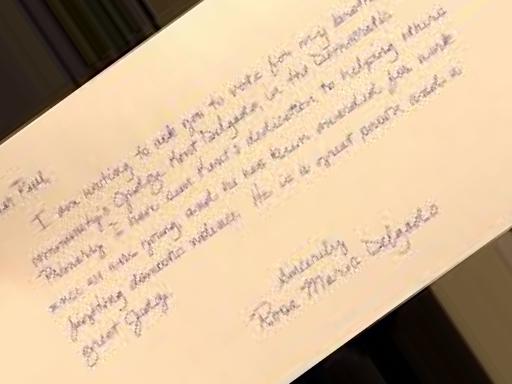 Paul
I am writing to ask you to vote for my brother
Judge Kent Delgado, in the Democratic
Primary. I have seen Kent's dedication to helping others
since we were young and he has been awarded for work
fighting domestic violence. He is a great person and a
great Judge
Sincerely
Rosa Maria Delgado